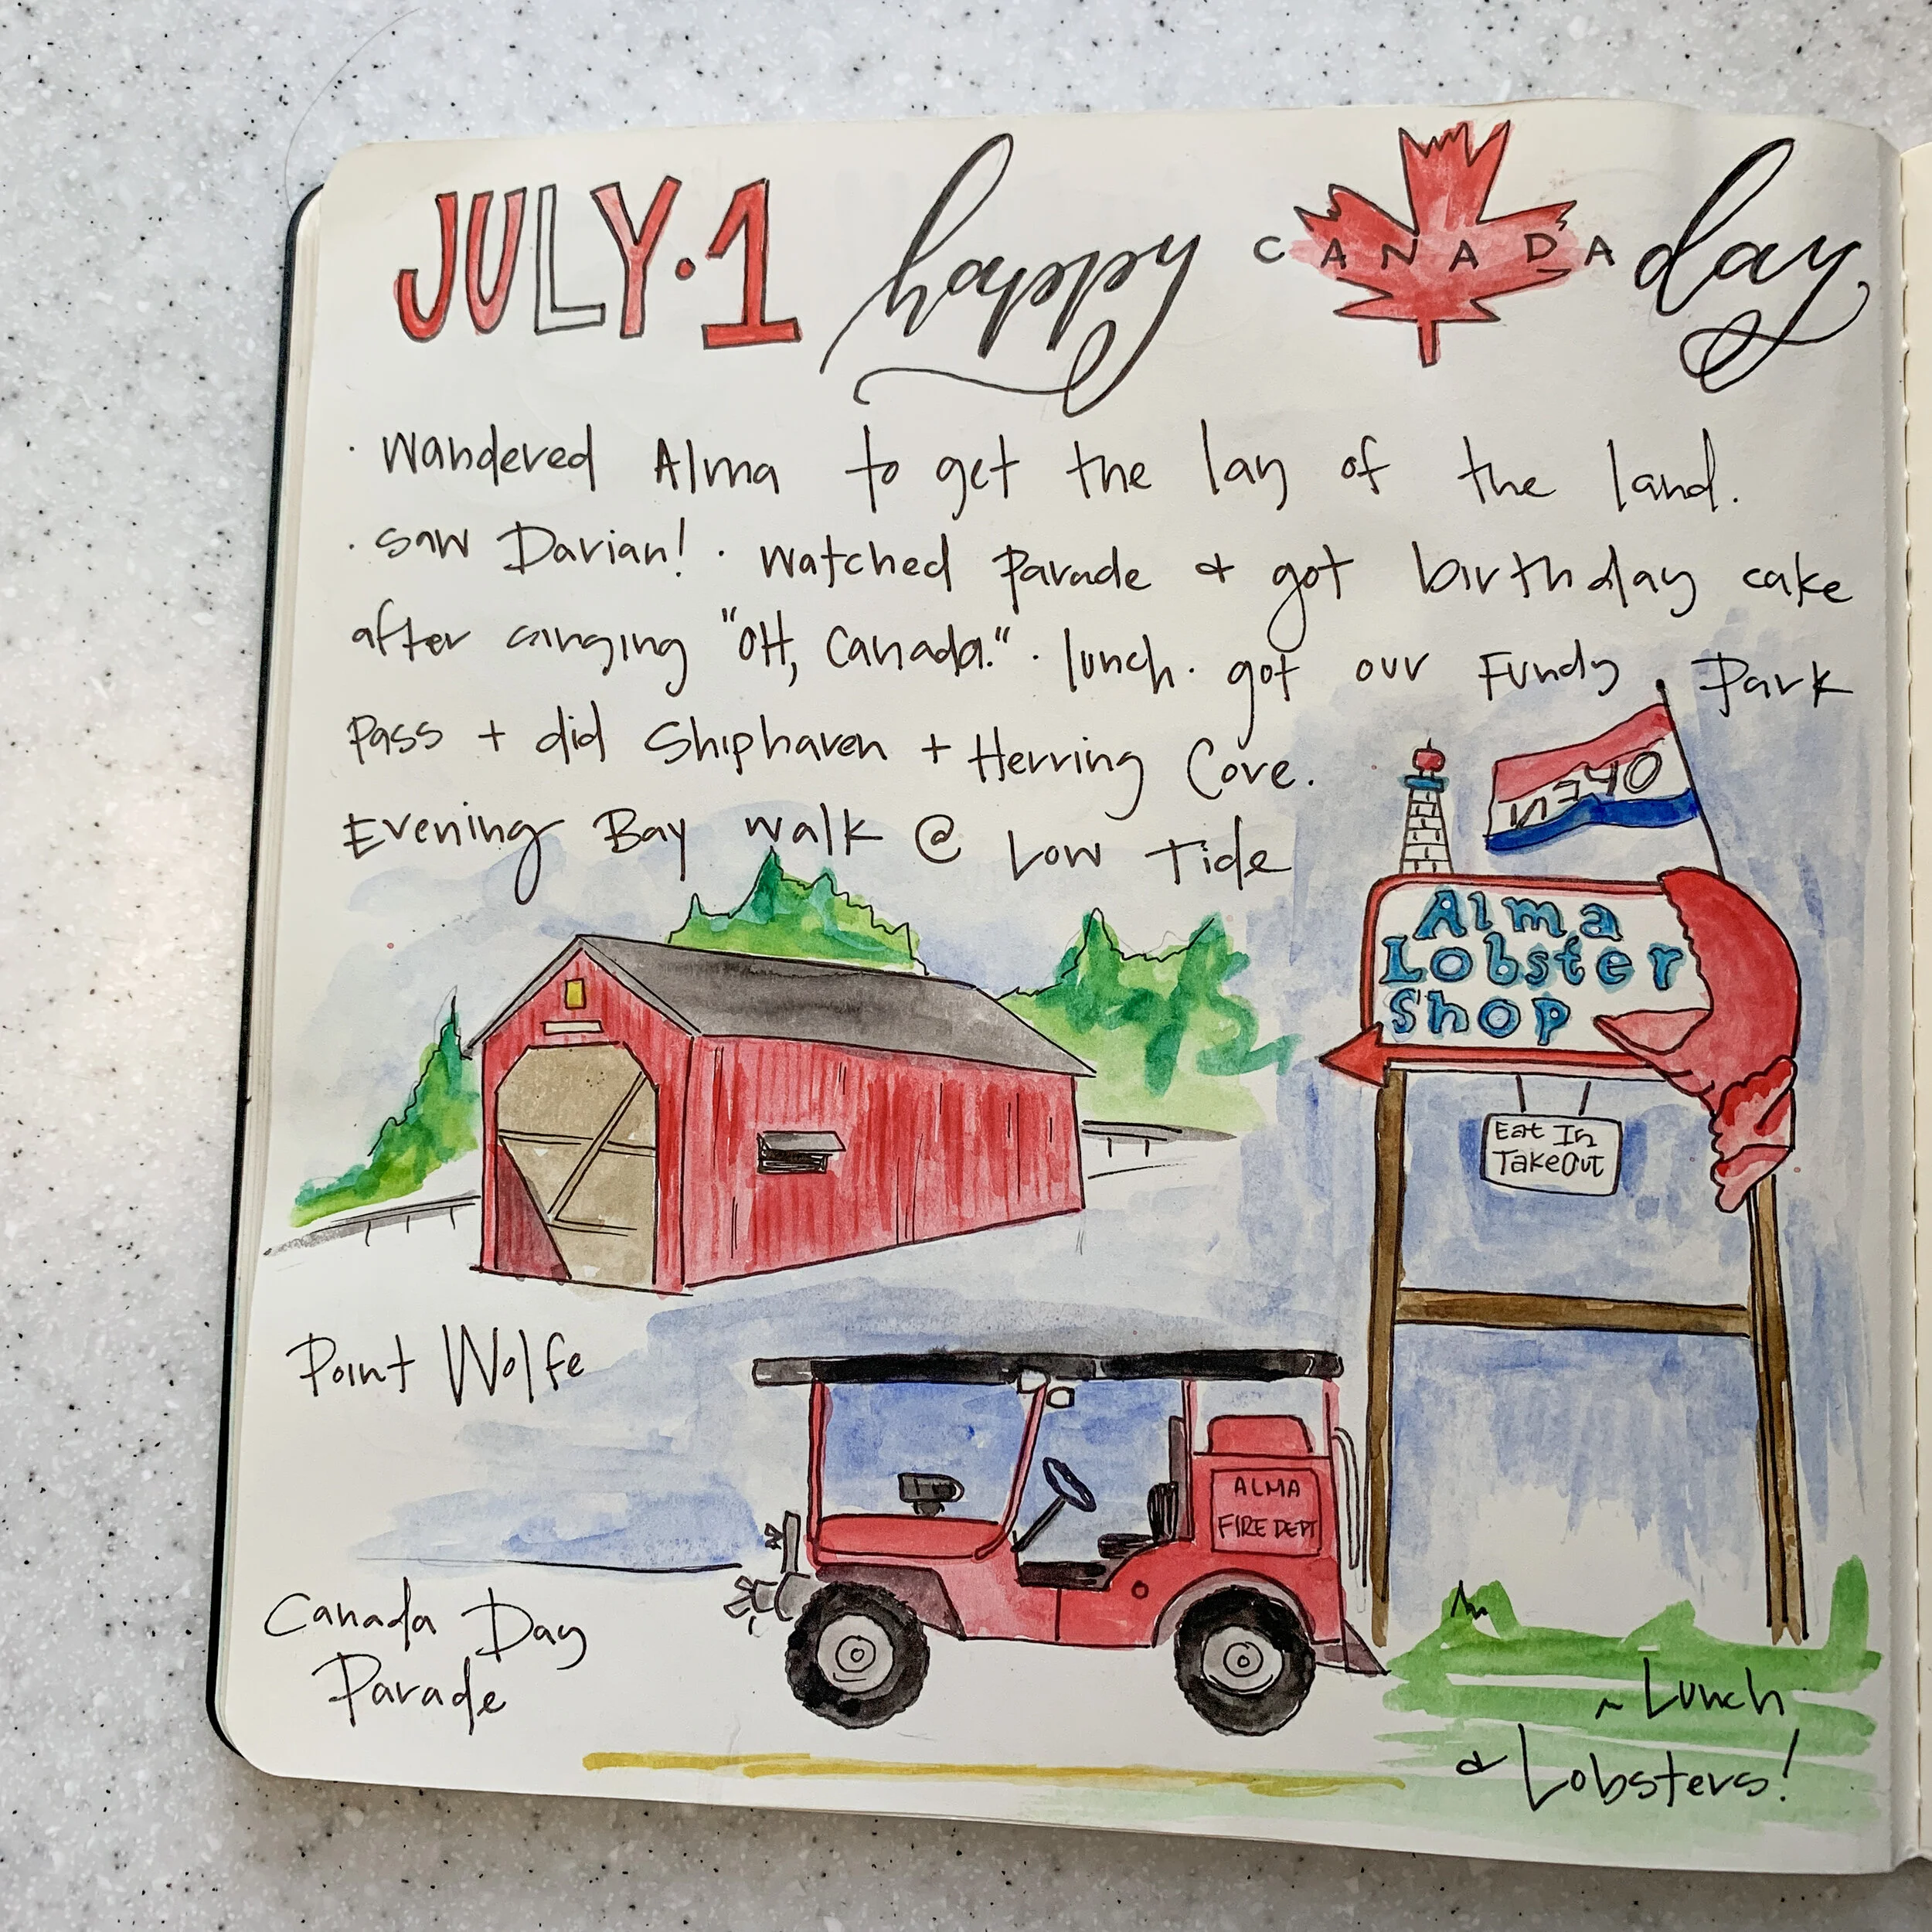 JULY · 1 happy CANADA day
· Wandered Alma to get the lay of the land.
· saw Darian! · watched parade & got birthday cake
after singing "OH, Canada." · lunch · got our Fundy Park
Pass + did Shiphaven + Herring Cove.
Evening Bay walk @ Low Tide
OPEN
Alma
Lobster
Shop
Eat In
TakeOut
Point Wolfe
ALMA
FIRE DEPT
Canada Day
Parade
~ Lunch
& Lobsters!